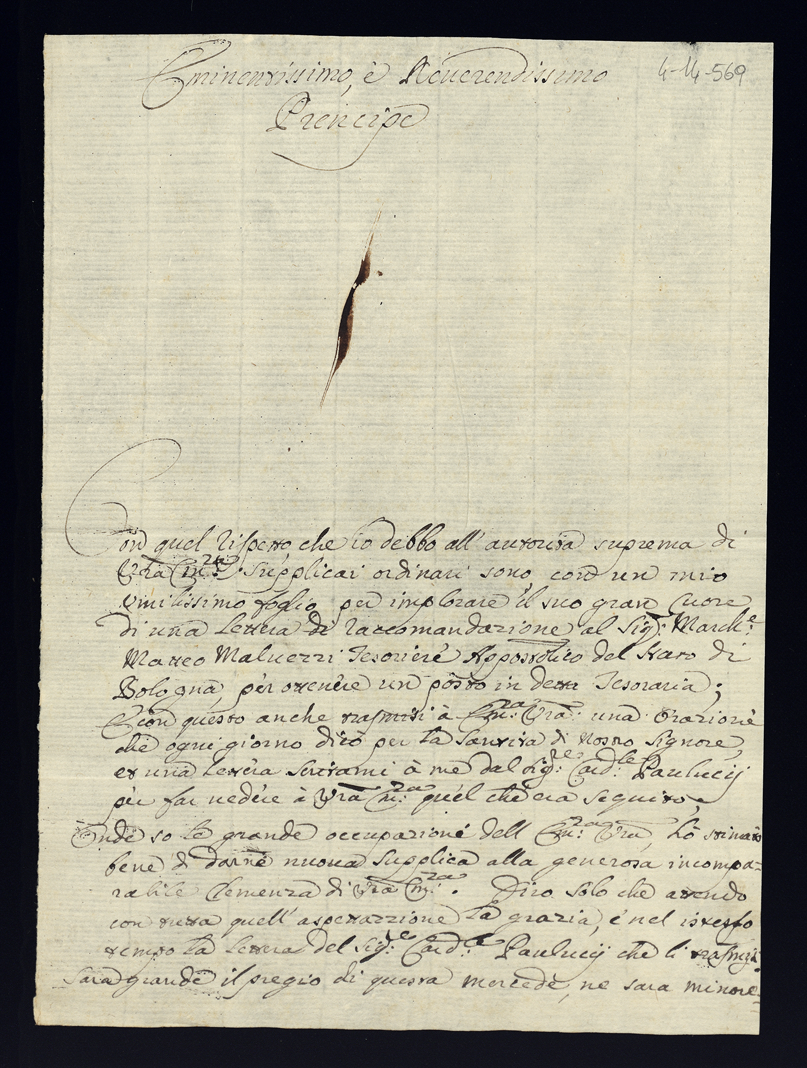 Eminentissimo, è Reuerendissimo
4-14-569
Prencipe
Con quel rispetto che io debbo all' autorità suprema di
Vra Em:za Supplicai ordinari sono, con un mio
Vmilissimo foglio per implorare il suo gran Cuore
di una Lettera di raccomandazione al Sig:r March:e
Matteo Maluezzi Tesoriere Appostolico del Stato di
Bologna, per ottenere un posto in detta Tesoraria;
E con questo anche trasmisi à Em:za Vra una Orazione
che ogni giorno dirò per la Santità di Nostro Signore,
et una Lettera scritami à me dal Sig:re Card:le Paulucij
per far uedere à Vra Em:za quel che era seguito,
Onde so le grande occupazione dell Em:za Vra, hò stimato
bene di darne nuoua Supplica alla generosa incompa-
rabile Clemenza di Vra Em:za. Diro solo che atendo
con tutta quell' aspettazzione la grazia, è nel istesso
tempo la Lettera del Sig:re Card:le Paulucij che li
Sara grande il pregio di questa mercede, ne sara minore